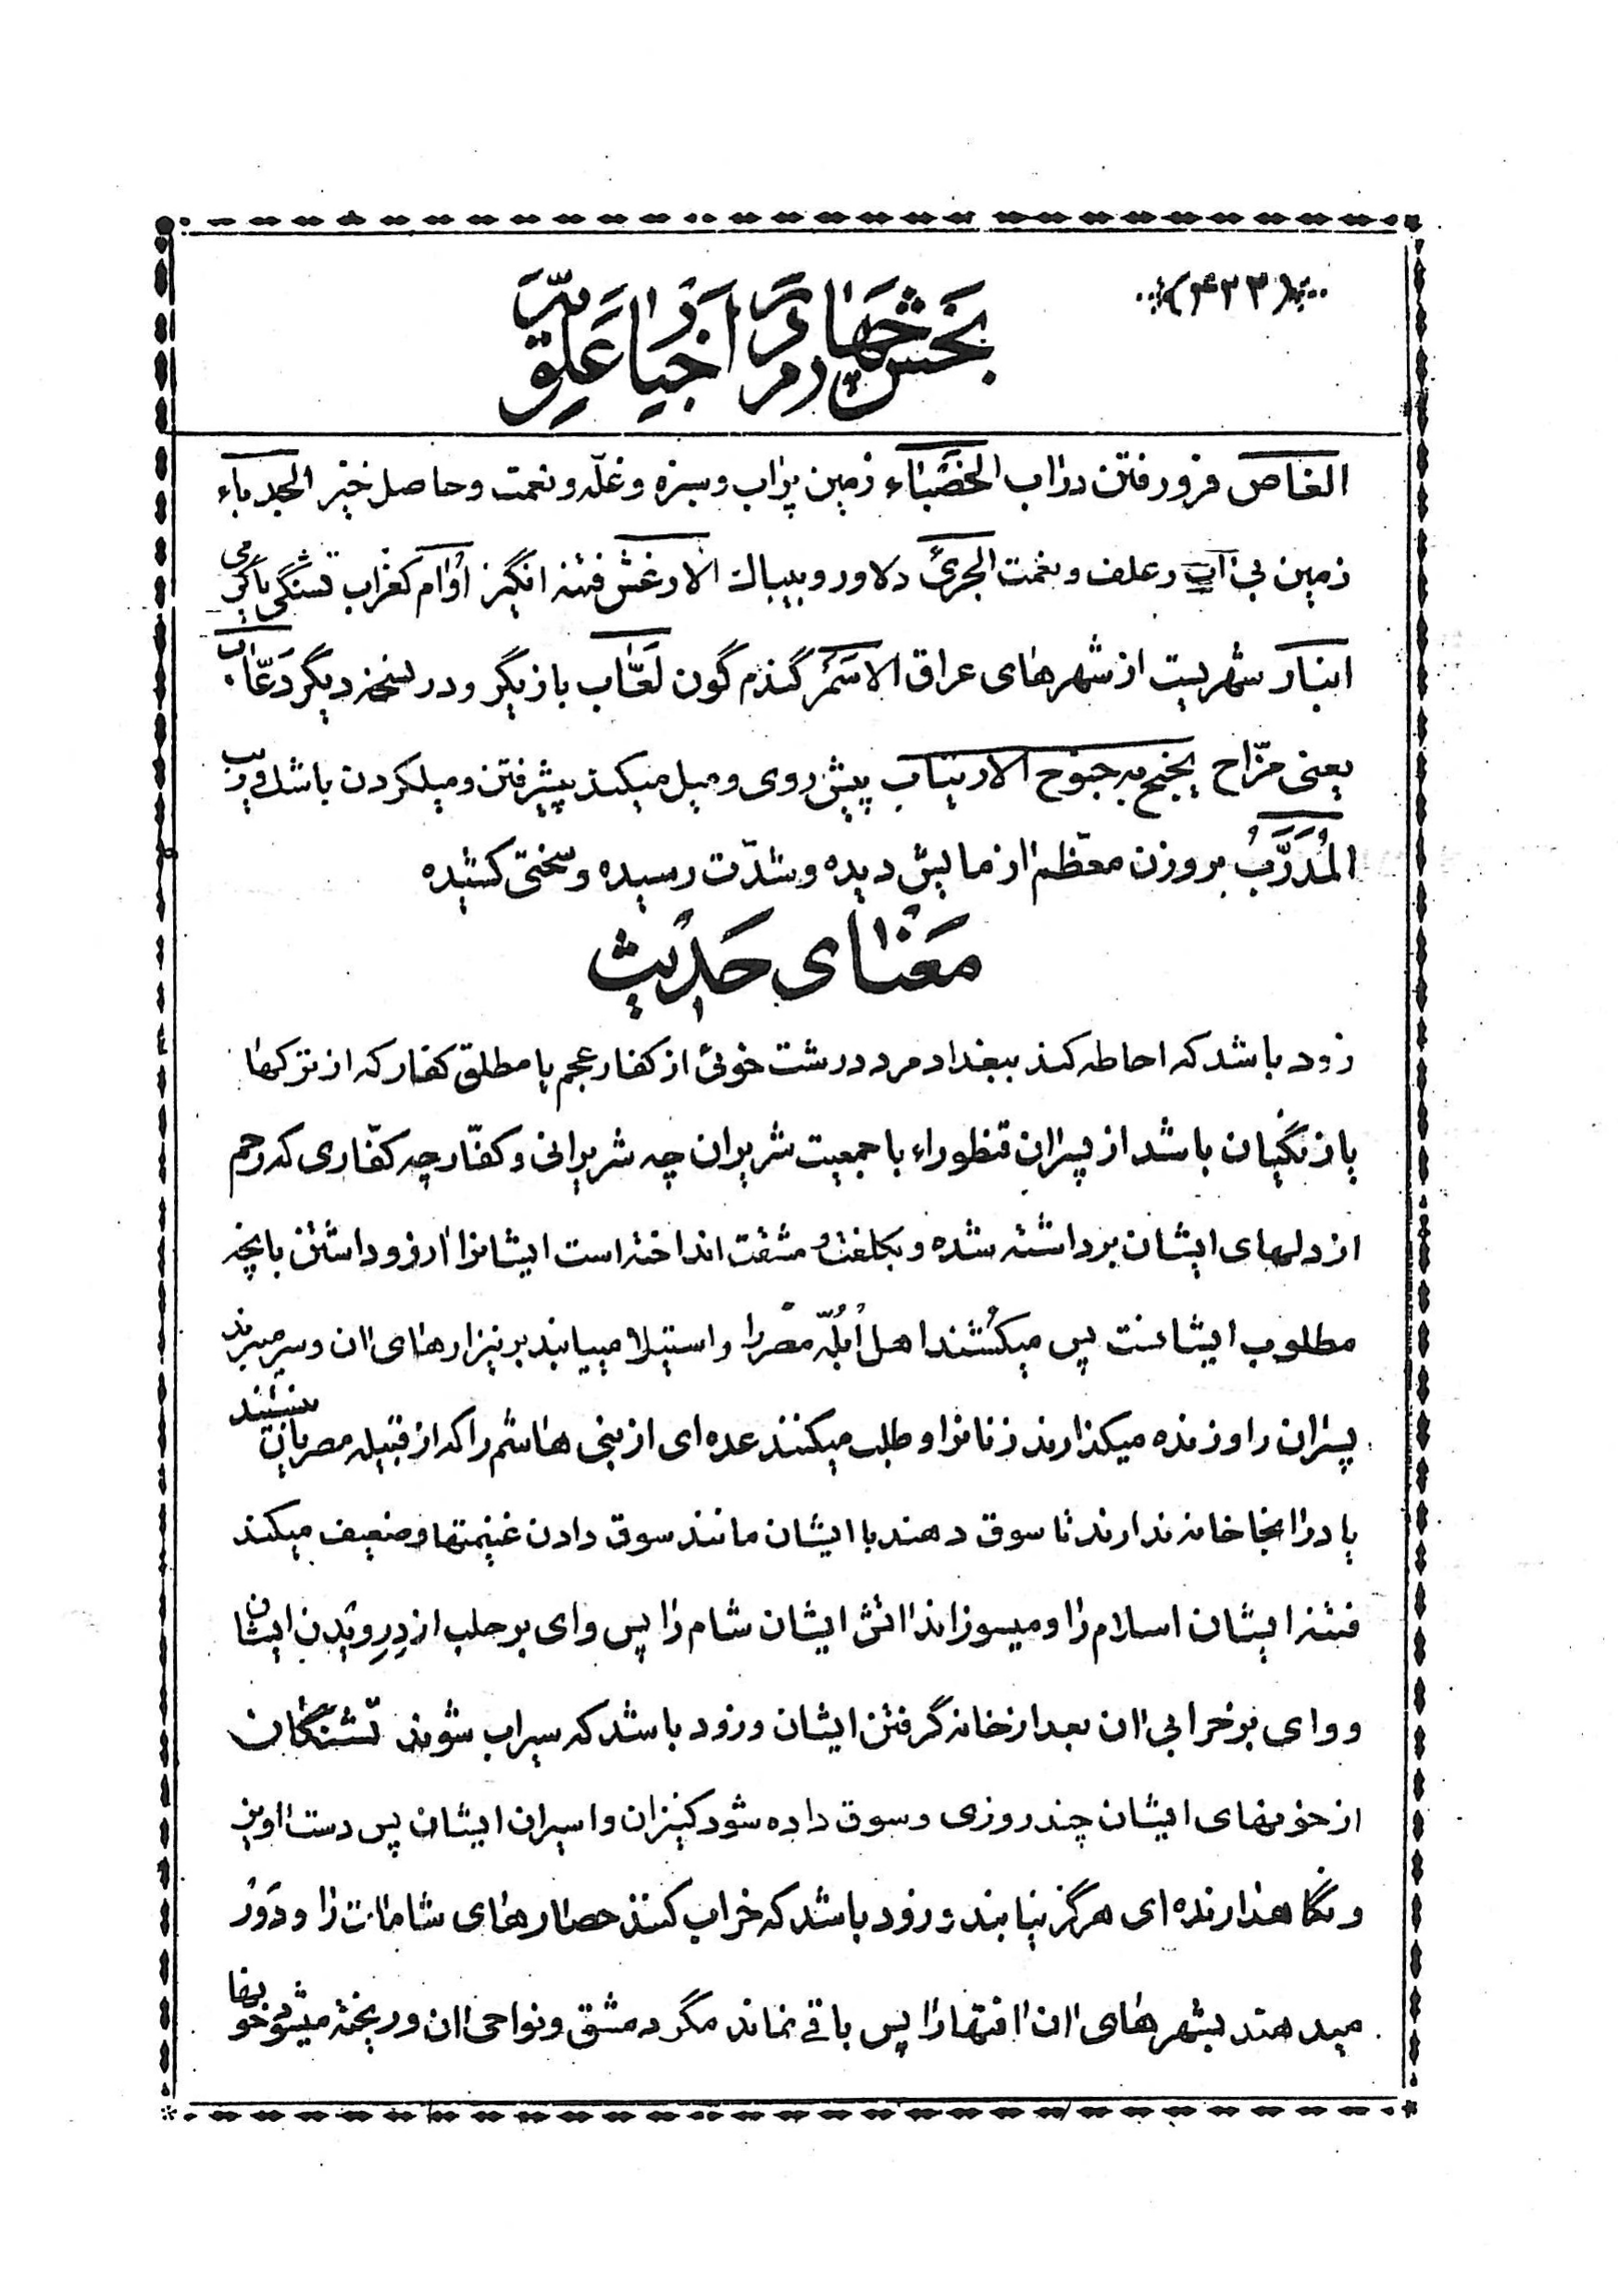 (۴۲۳)
بخش چهارم در اخبار علویّه
الغاص فرو رفتن در آب الخصباء زمین پرآب و سبزه و غلّه و نعمت و حاصل خیز الجدباء
زمین بی آب و علف و نعمت الجریّ دلاور و بیباک الارغش فتنه انگیز اوام کغراب تشنگی یا گرمی
انبار شهریست از شهرهای عراق الاسمر گندم گون لعّاب بازیگر و در نسخه دیگر دعّاب
یعنی مزّاح یجنح به جنوح الارتیاب پیش روی و میل میکند پیش رفتن و میل کردن با شک و ریب
المُدَرَّبُ بر وزن معظّم آزمایش دیده و شدّت رسیده و سختی کشیده
معنای حدیث
زود باشد که احاطه کند ببغداد مرد درشت خوئی از کفار عجم یا مطلق کفار که از ترکها
یا زنگیان باشد از پسران قنطوراء با جمعیت شریران چه شریرانی و کفّار چه کفّاری که رحم
از دلهای ایشان برداشته شده و بکلفت و مشقت انداخته است ایشانرا آرزو داشتن بآنچه
مطلوب ایشانست پس میکُشند اهل اُبُلّه مصر را و استیلا مییابند بر نیزارهای آن و سر میبرند
پسران را و زنده میگذارند زنانرا و طلب میکنند عده ای از بنی هاشم را که از قبیله مصریان نیستند
یا در آنجا خانه ندارند تا سوق دهند با ایشان مانند سوق دادن غنیمتها و ضعیف میکند
فتنه ایشان اسلام را و میسوزاند آتش ایشان شام را پس وای بر حلب از درویدن ایشان
و وای بر خرابی آن بعد از خانه گرفتن ایشان و زود باشد که سیراب شوند تشنگان
از خونهای ایشان چند روزی و سوق داده شود کنیزان و اسیران ایشان پس دست آویز
و نگاهدارنده ای هرگز نیابند و زود باشد که خراب کنند حصارهای شامات را و دَوْر
میدهند بشهرهای آن آفتها را پس باقی نماند مگر دمشق و نواحی آن و ریخته میشود خونها